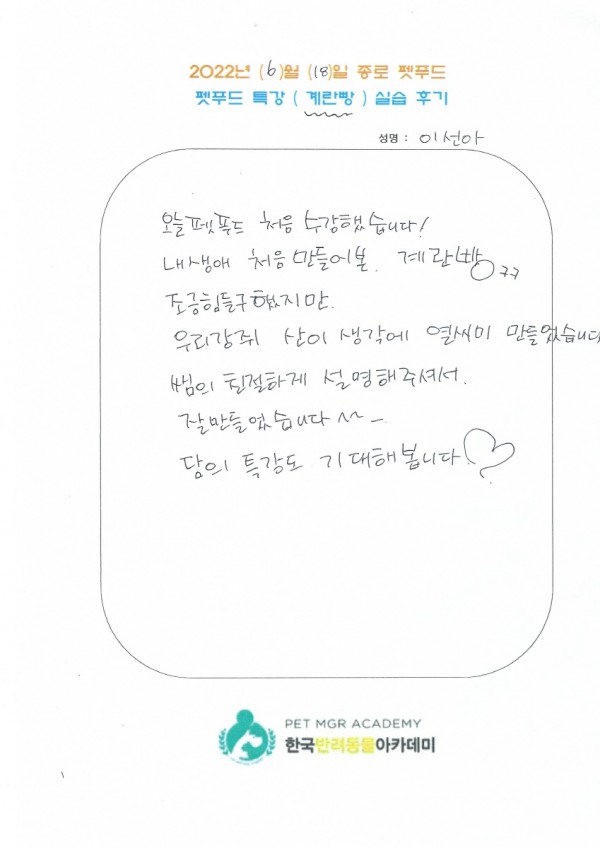 2022년 (6)월 (18)일 종로 펫푸드
펫푸드 특강 ( 계란빵 ) 실습 후기
성명 : 이선아
오늘펫푸드 처음 수강했습니다!
내생애 처음만들어본. 계란빵ㅋㅋ
조금힘들구했지만.
우리강쥐 산이 생각에 열씨미 만들었습니다
쌤의 친절하게 설명해주셔서.
잘만들었습니다~~
담의 특강도 기대해봅니다♡
PET MGR ACADEMY
한국반려동물아카데미